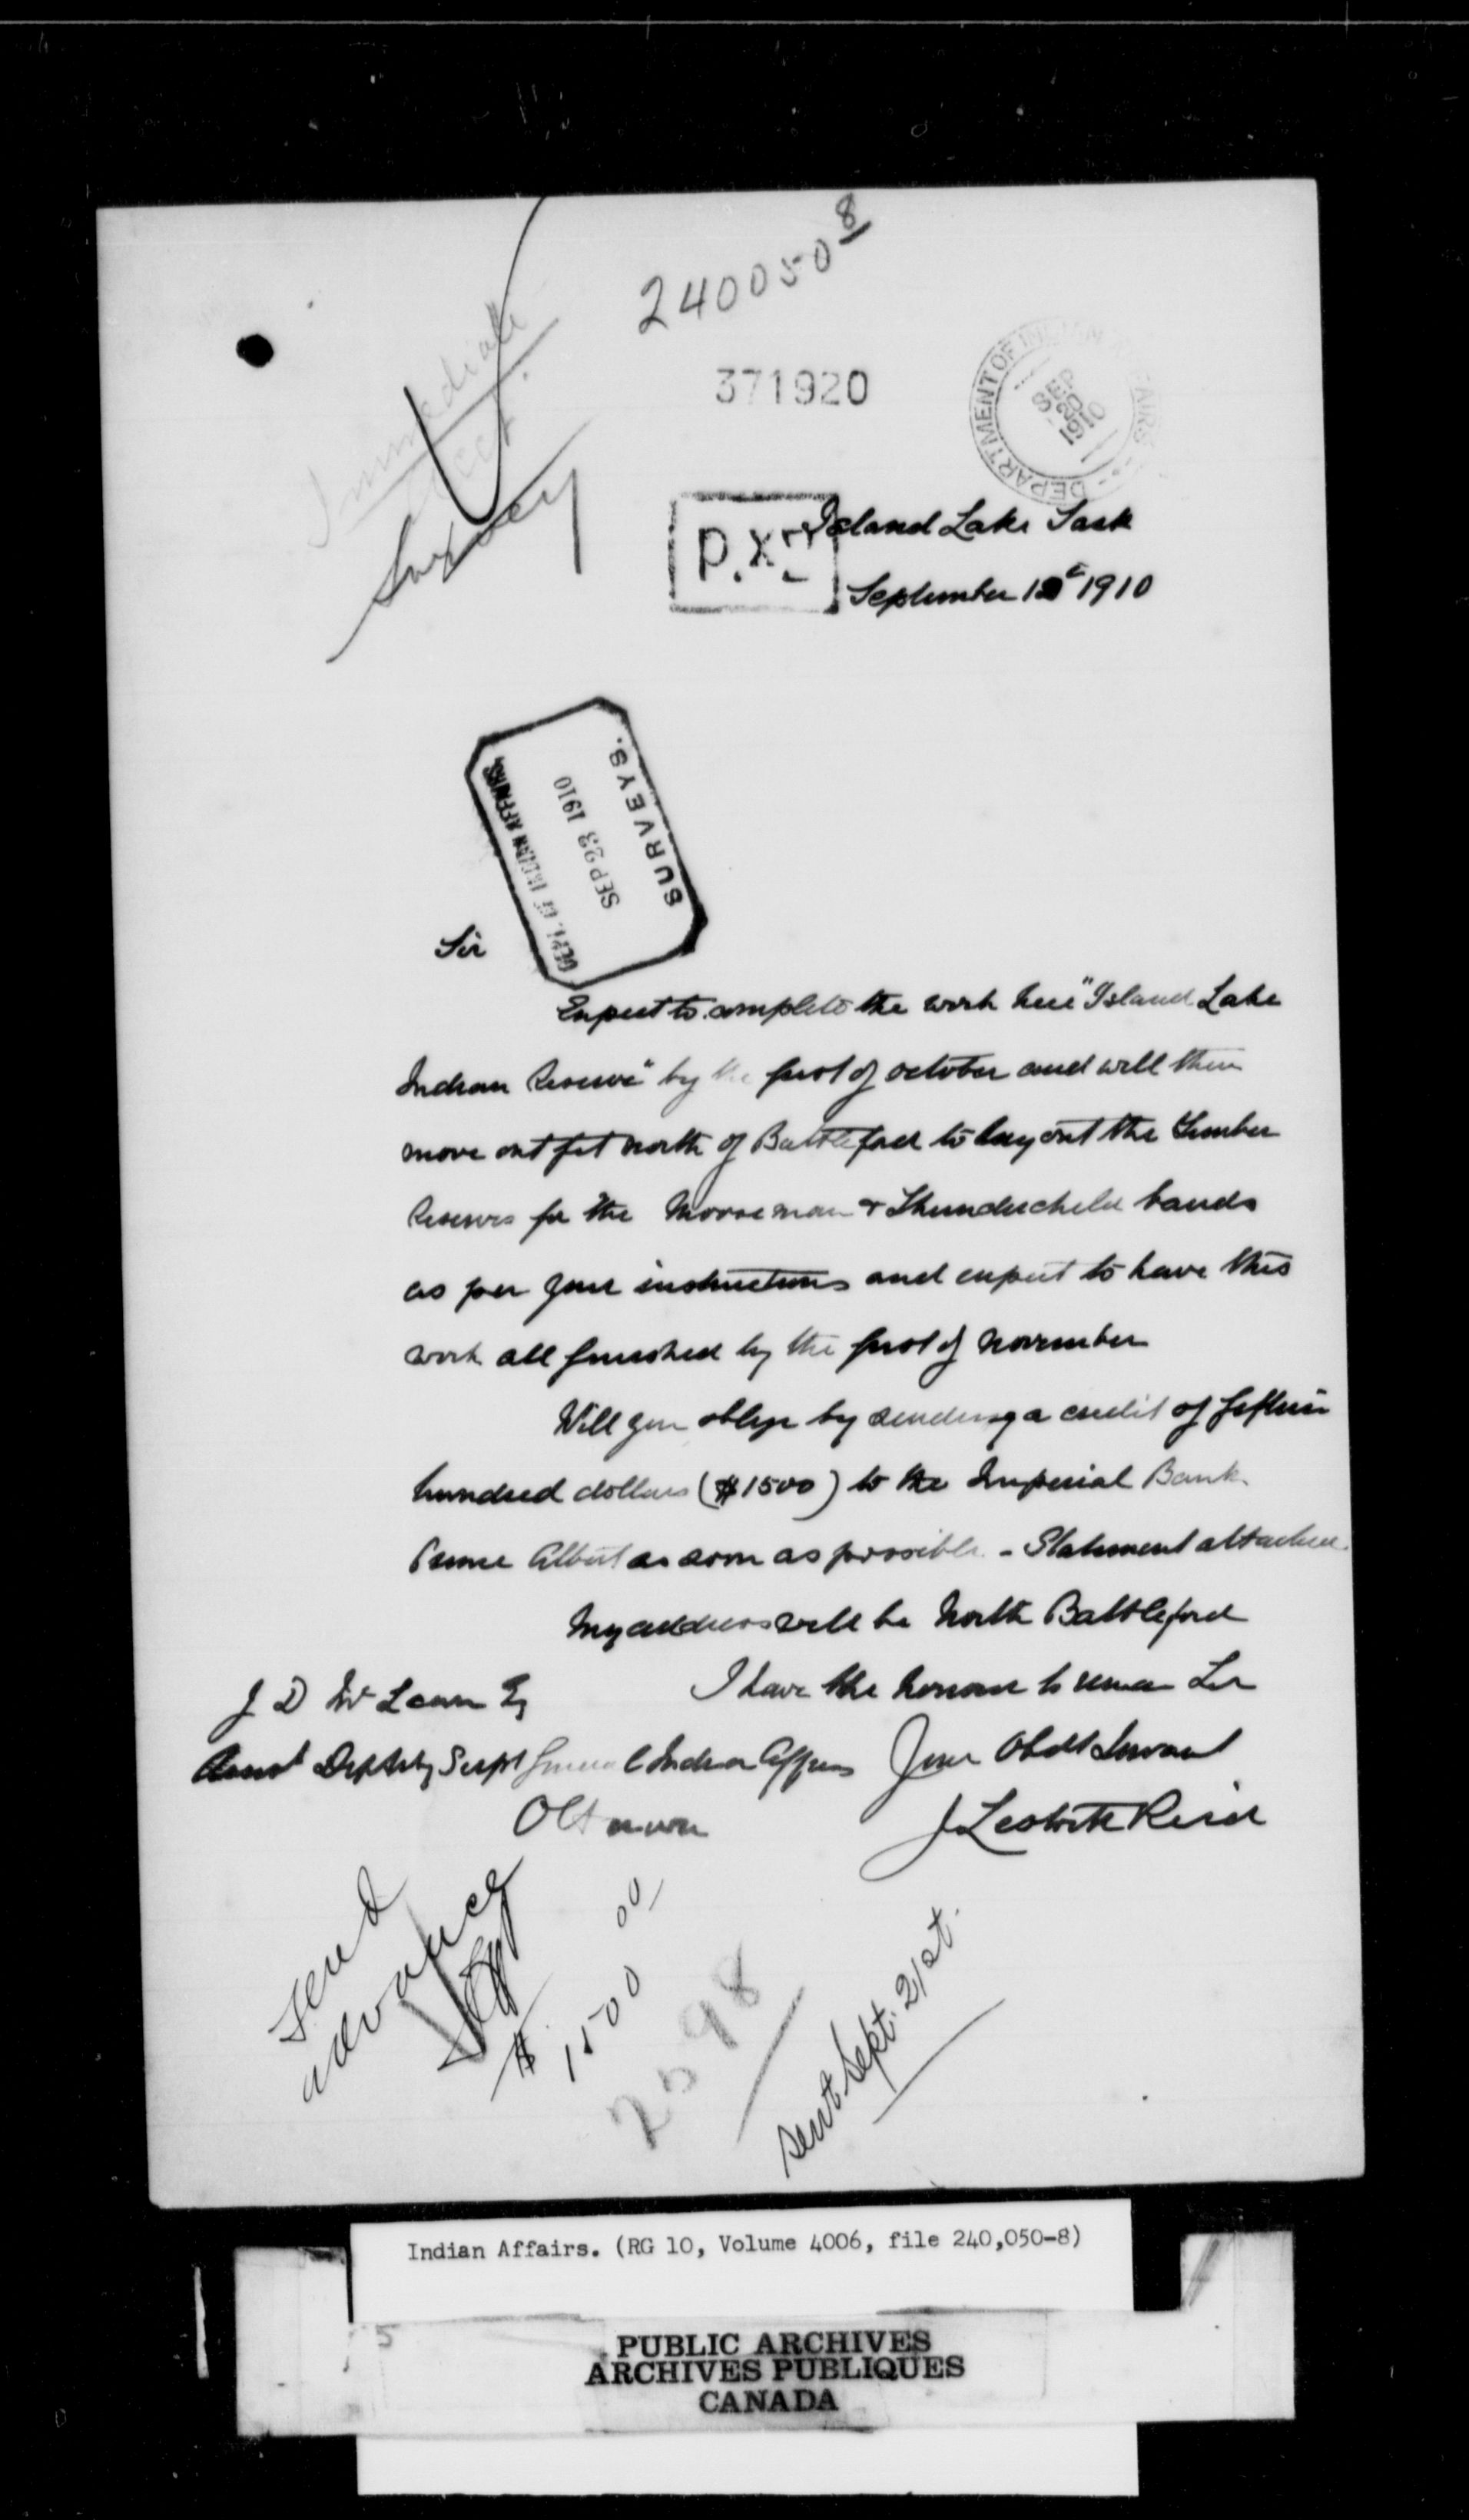 240050 8
371920
DEPARTMENT OF INDIAN AFFAIRS
SEP 20 1910
Immediate
Survey
P.X.
Island Lake Sask
September 12th 1910
SURVEYS.
SEP 23 1910
DEPT. OF INDIAN AFFAIRS,
Sir
Expect to complete the work here "Island Lake
Indian Reserve" by the first of october and will then
move outfit north of Battleford to lay out the timber
Reserves for the Moosoman & Thunderchild bands
as per your instructions and expect to have this
work all finished by the first of november
Will you oblige by sending a credit of fifteen
hundred dollars ($1500) to the Imperial Bank
Prince Albert as soon as possible - Statement attached
My address will be North Battleford
I have the honour to remain Sir
J D McLean Esq
Your Obdt Servant
Asst Deputy Supt General Indian Affairs
J Lestock Reid
Ottawa
Send
advance
$1500 00
2598
Sent Sept. 21st.
Indian Affairs. (RG 10, Volume 4006, file 240,050-8)
5
PUBLIC ARCHIVES
ARCHIVES PUBLIQUES
CANADA